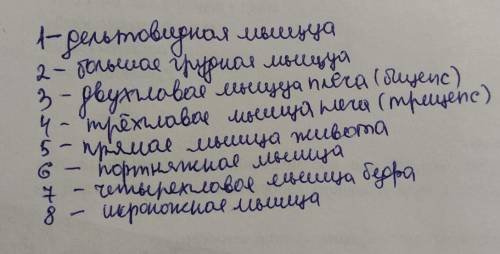 1 - дельтовидная мышца
2 - большая грудная мышца
3 - двухглавая мышца плеча (бицепс)
4 - трёхглавая мышца плеча (трицепс)
5 - прямая мышца живота
6 - портняжная мышца
7 - четырехглавая мышца бедра
8 - икроножная мышца